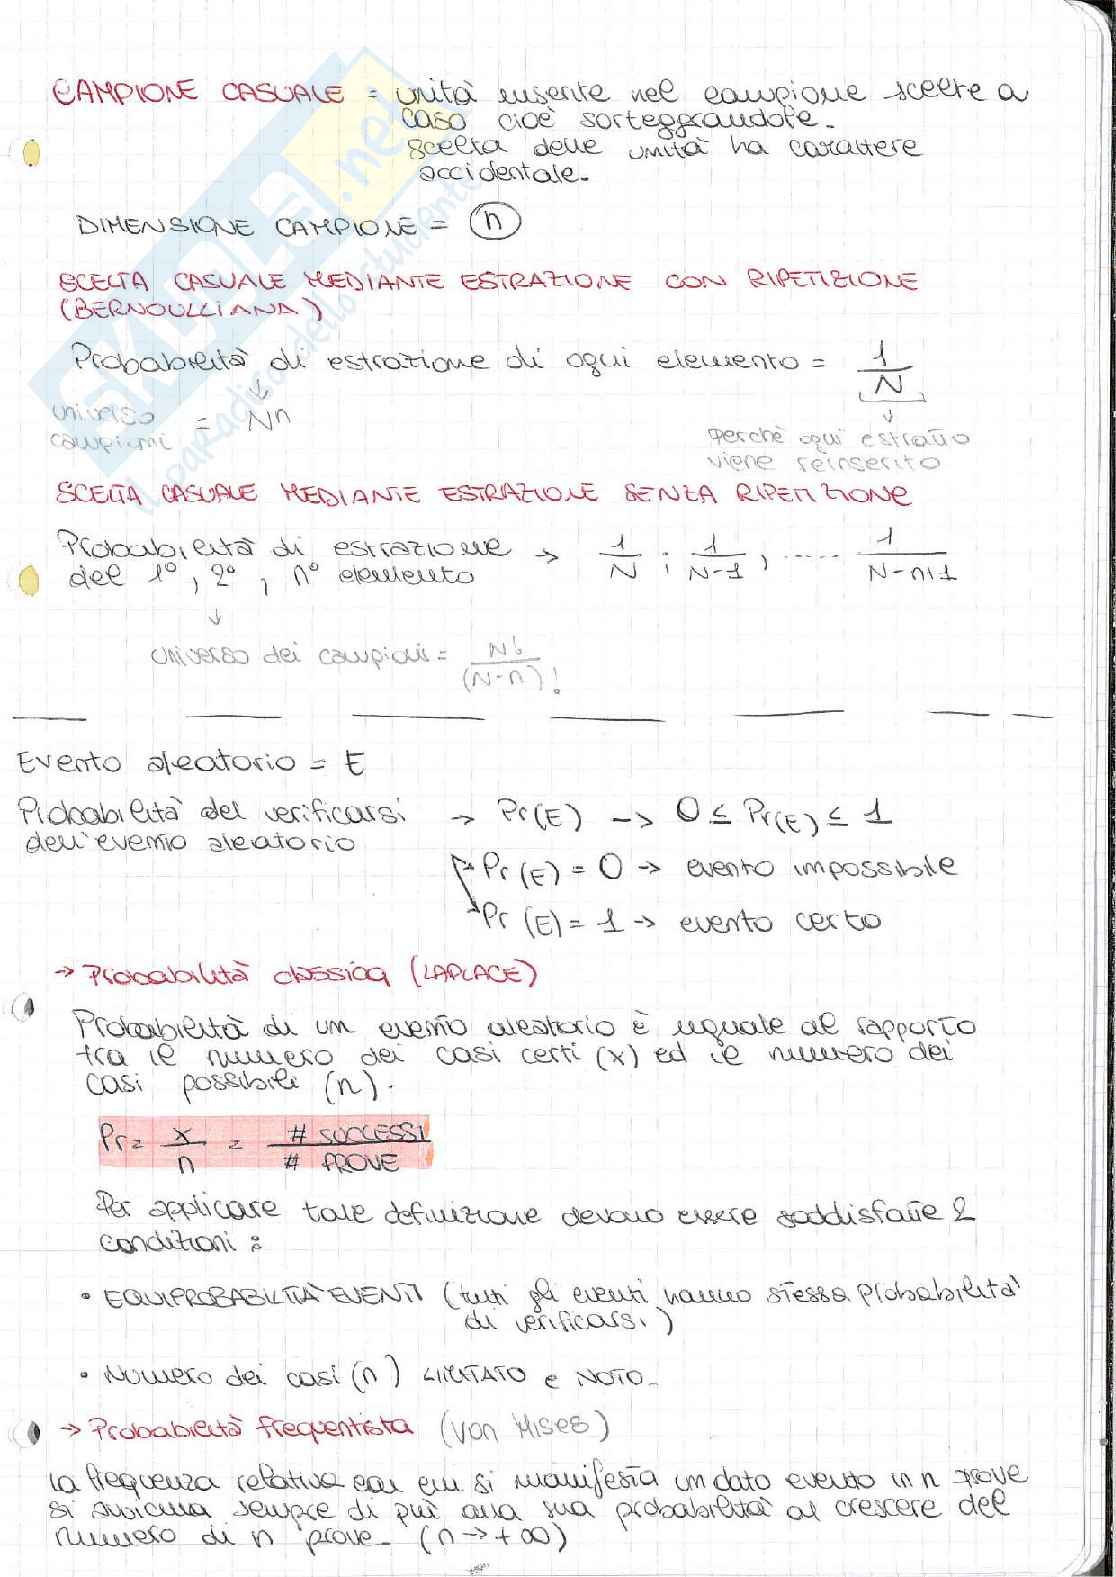 CAMPIONE CASUALE = unità inserite nel campione scelte a
caso cioè sorteggiandole.
Scelta delle unità ha carattere
accidentale.
DIMENSIONE CAMPIONE = n
SCELTA CASUALE MEDIANTE ESTRAZIONE CON RIPETIZIONE
(BERNOULLIANA)
Probabilità di estrazione di ogni elemento = 1/N
universo campioni = N^n
perchè ogni estratto
viene reinserito
SCELTA CASUALE MEDIANTE ESTRAZIONE SENZA RIPETIZIONE
Probabilità di estrazione → 1/N ; 1/N-1 , ..... 1/N-n+1
del 1° , 2° , n° elemento
universo dei campioni = N!/(N-n)!
Evento aleatorio = E
Probabilità del verificarsi → Pr(E) → 0 ≤ Pr(E) ≤ 1
dell'evento aleatorio
Pr(E) = 0 → evento impossibile
Pr(E) = 1 → evento certo
→ Probabilità classica (LAPLACE)
Probabilità di un evento aleatorio è uguale al rapporto
tra il numero dei casi certi (x) ed il numero dei
casi possibili (n).
Pr = x/n = # SUCCESSI/# PROVE
Per applicare tale definizione devono essere soddisfatte 2
condizioni :
• EQUIPROBABILITÀ EVENTI (tutti gli eventi hanno stessa probabilità
di verificarsi)
• Numero dei casi (n) LIMITATO e NOTO.
→ Probabilità frequentista (Von Mises)
La frequenza relativa con cui si manifesta un dato evento in n prove
si avvicina sempre di più alla sua probabilità al crescere del
numero di n prove. (n → + ∞)
SKUOLA.net
il paradiso dello studente